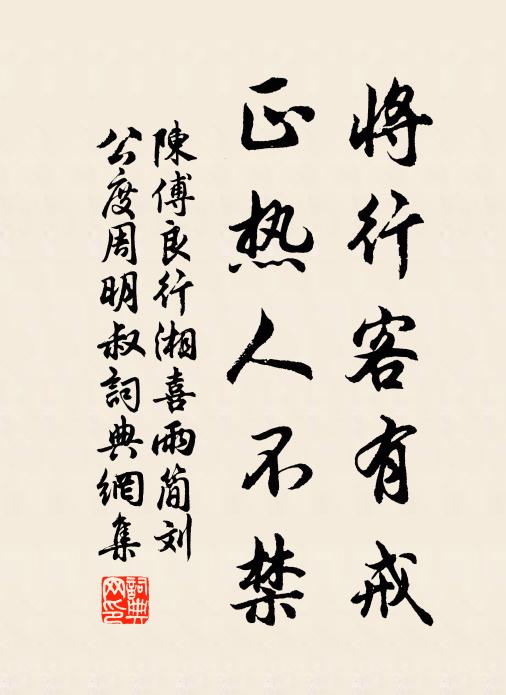 将行客有戒
正热人不禁
陳傅良行湘喜雨簡刘
公度周明叔詞典網集
詞典网印